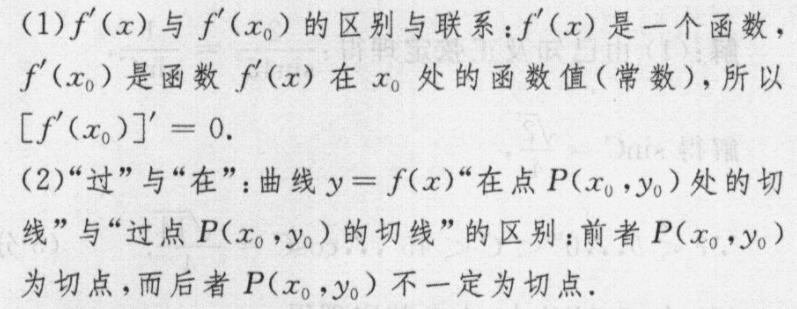 (1)f′(x)与 f′(x₀)的区别与联系:f′(x)是一个函数,
f′(x₀)是函数 f′(x)在 x₀ 处的函数值(常数),所以
[f′(x₀)]′ = 0.
(2)“过”与“在”:曲线 y = f(x)“在点 P(x₀,y₀)处的切
线”与“过点 P(x₀,y₀)的切线”的区别:前者 P(x₀,y₀)
为切点,而后者 P(x₀,y₀)不一定为切点.